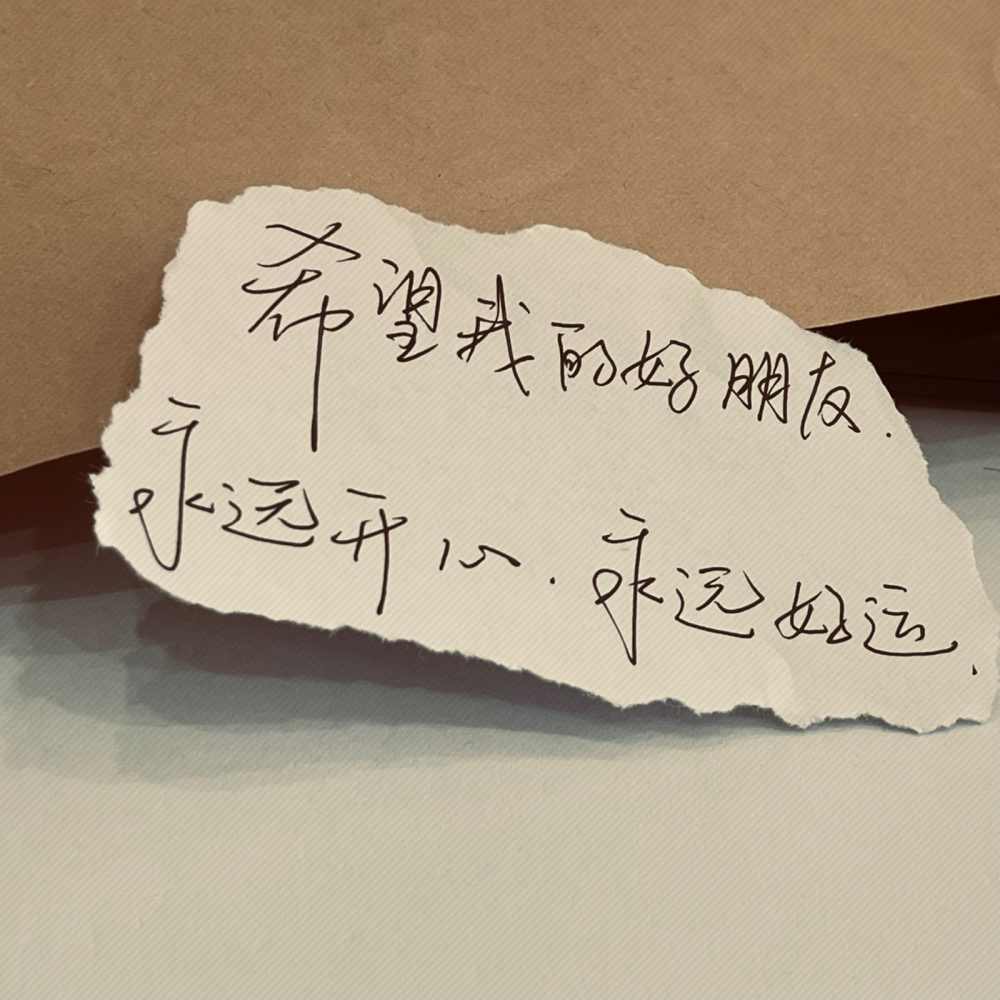 希望我的好朋友.
永远开心.永远好运.